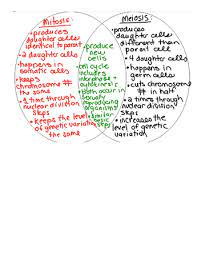 Mitosis
• produces
daughter cells
identical to parent
• 2 daughter cells
• happens in
somatic cells
• keeps
chromosome #
the same
• 1 time through
nuclear division
steps
• keeps the level
of genetic variation
the same
produce
new
cells
cell cycle
includes
interphase +
cytokinesis
• Both occur in
sexually
reproducing
organisms
• similar
basic
steps
Meiosis
• produces
daughter cells
different than
parent cell
• 4 daughter cells
• happens in
germ cells
• cuts chromosome
# in half
• 2 times through
nuclear division
steps
• increases the
level of genetic
variation